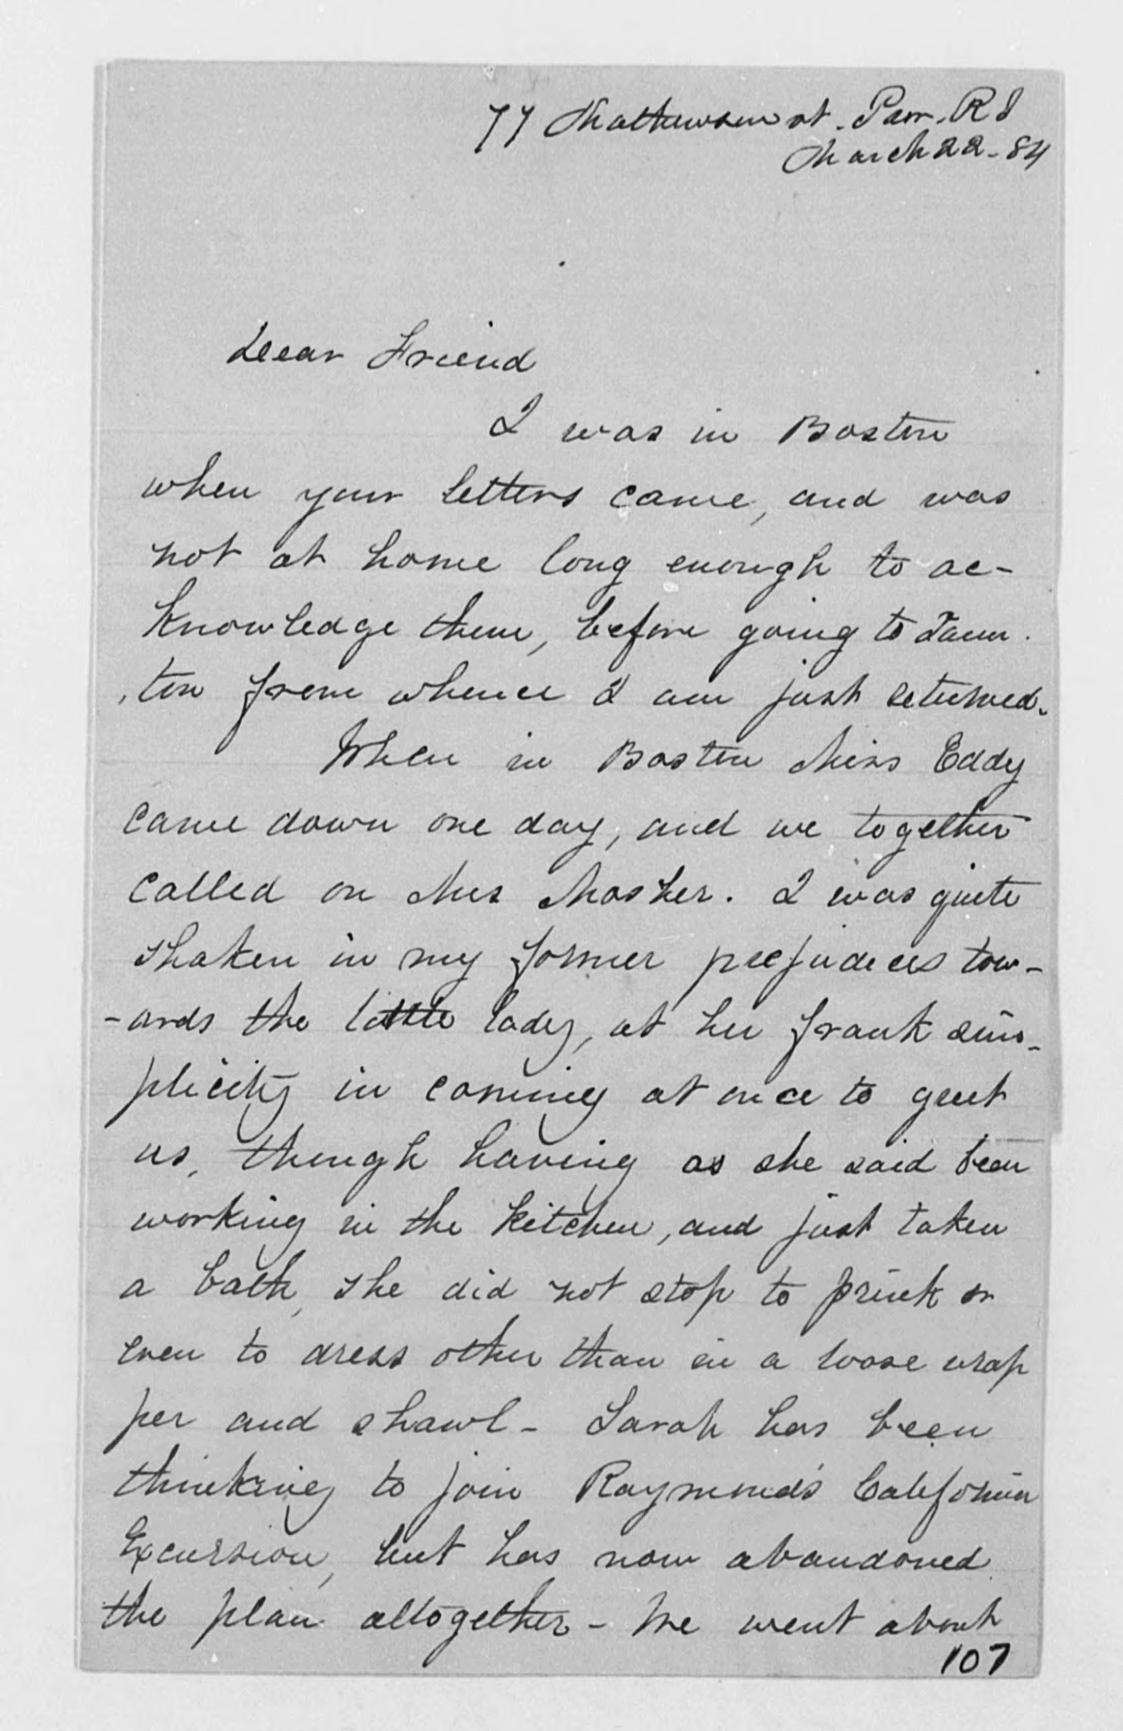 77 Mathewson st. Prov. R I
March 22 - 84
Dear Friend
I was in Boston
when your letters came, and was
not at home long enough to ac-
knowledge them, before going to Taun-
-ton from whence I am just returned.
When in Boston Miss Eddy
came down one day, and we together
called on Mrs Mosher. I was quite
shaken in my former prejudices tow-
-ards the little lady, at her frank sim-
plicity in coming at once to greet
us, though having as she said been
working in the kitchen, and just taken
a bath, she did not stop to prink or
even to dress other than in a loose wrap
per and shawl - Sarah has been
thinking to join Raymond's California
Excursion, but has now abandoned
the plan altogether - We went about
107